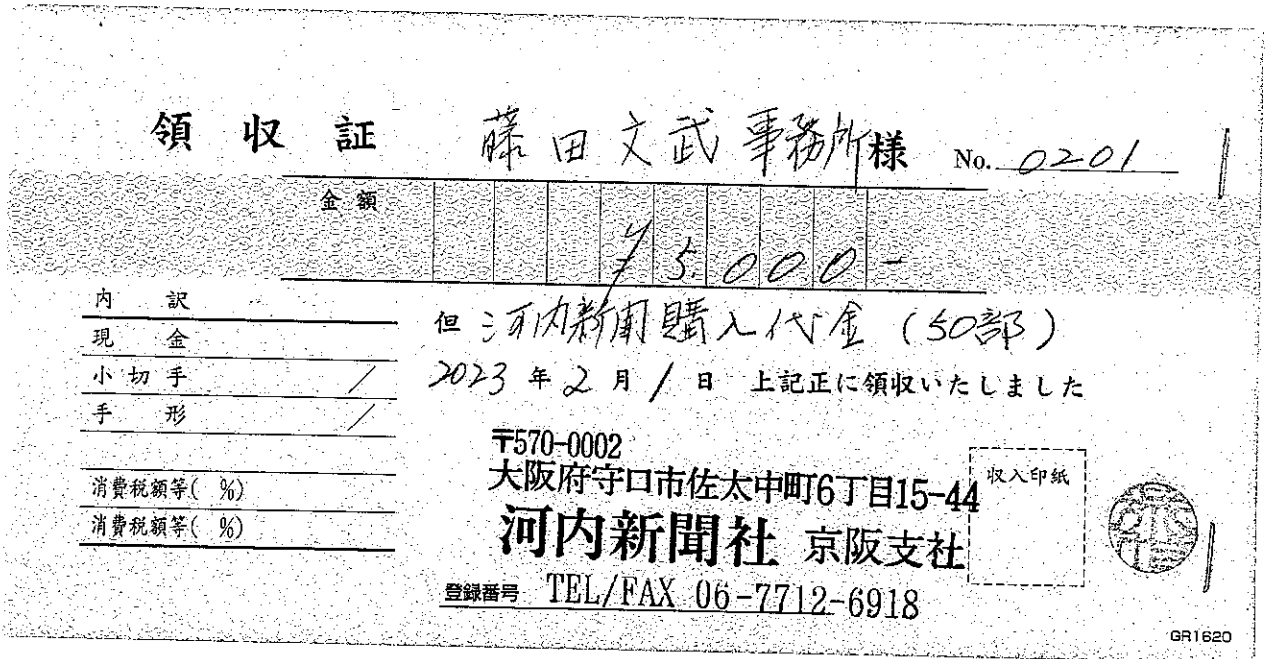 領収証 藤田文武事務所様 No. 0201
金額 ¥5,000-
内訳
現金
小切手 /
手形 /
消費税額等( %)
消費税額等( %)
但 河内新聞購入代金 (50部)
2023年2月1日 上記正に領収いたしました
〒570-0002
大阪府守口市佐太中町6丁目15-44
河内新聞社 京阪支社
登録番号 TEL/FAX 06-7712-6918
収入印紙
GR1620